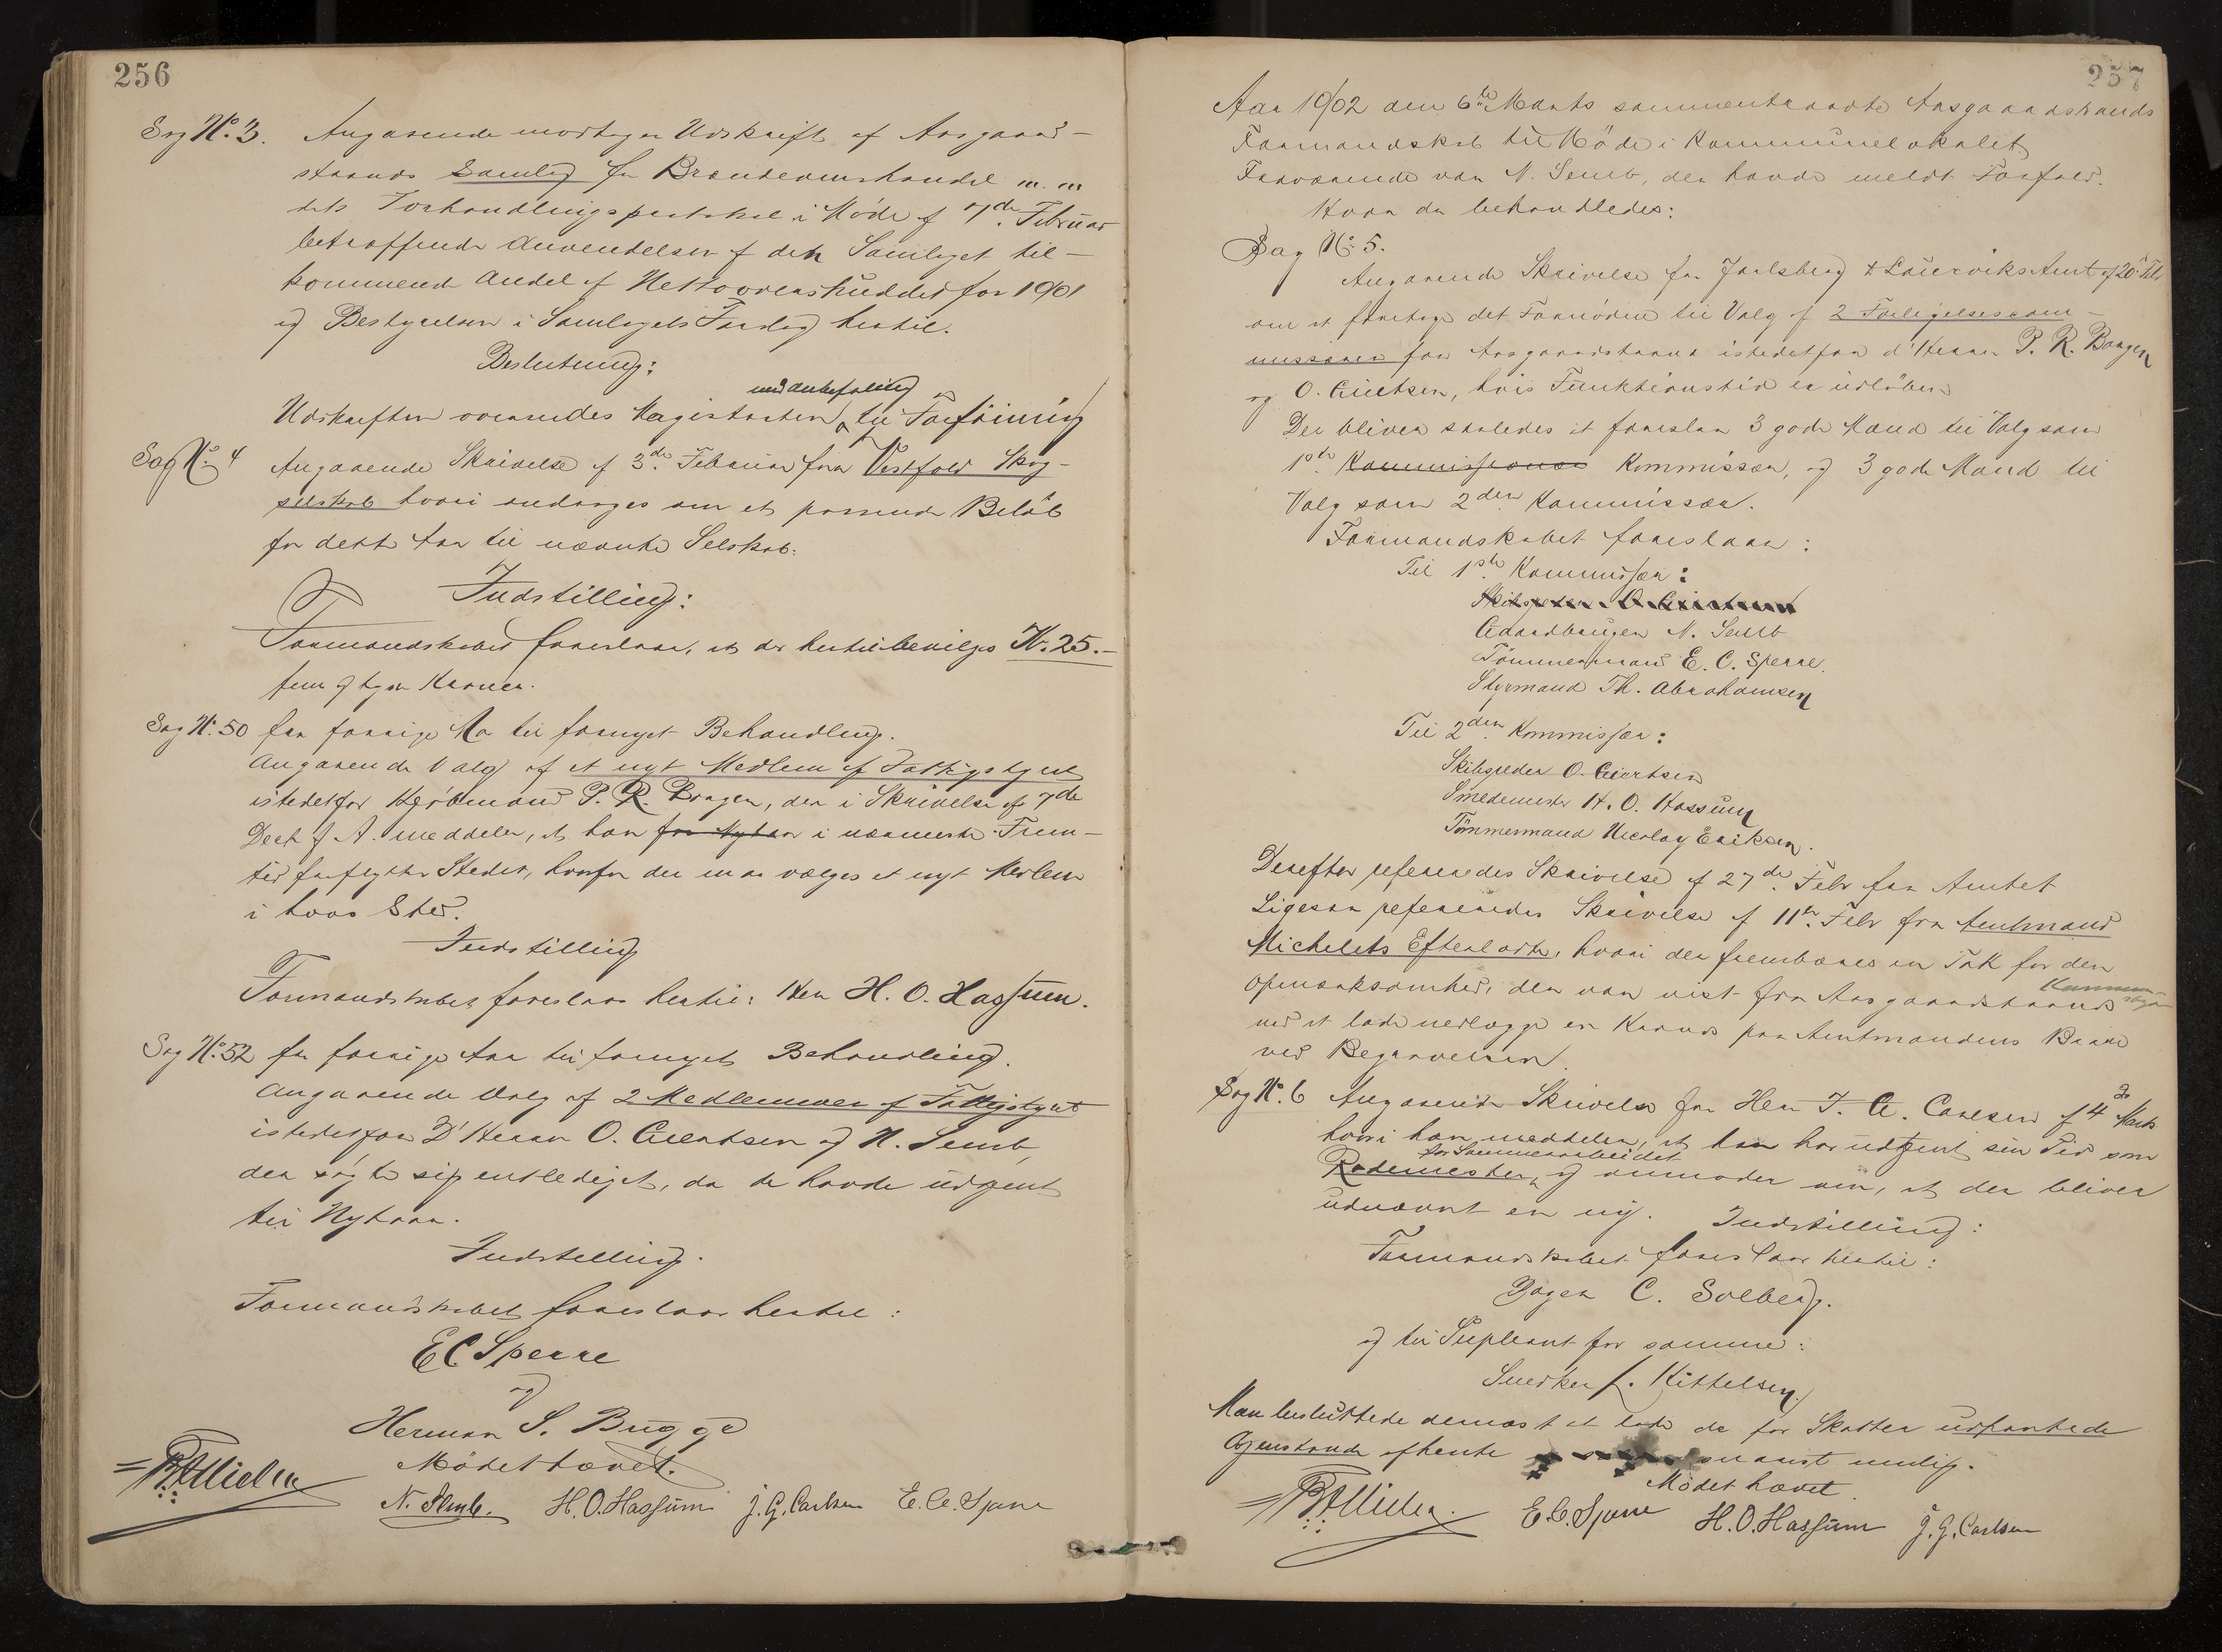 256
Sag No. 3. Angaaende modtagen Udskrift af Aasgaard-
strands Samlag for Brændevinshandel m. m
dets Forhandlingsprotokol i Møde af 7de Februar
betræffende Anvendelsen af den Samlaget til-
kommende Andel af Nettooverskuddet for 1901
og Bestyrelsen i Samlagets Forslag hertil.
Beslutning:
med Anbefaling
Udskriften oversendes Magistraten til Forføining
Sag No. 4 Angaaende Skrivelse af 3de Februar fra Vestfold Skog-
selskab hvori andrages om et passende Beløb
for dette Aar til nævnte Selskab.
Indstilling:
Formandskabet foreslaar, at der hertil bevilges Kr. 25.-
fem og tyve Kroner.
Sag No. 50 fra forrige Aar til fornyet Behandling.
Angaaende Valg af et nyt Medlem af Fattigstyret
istedetfor Kjøbmand P. R. Bragen, der i Skrivelse af 7de
Decb f. A. meddeler, at han for Nytaar i nærmeste Frem-
tid fraflytter Stedet, hvorfor der maa vælges et nyt Medlem
i hans Sted.
Indstilling
Formandskabet foreslaar hertil: Herr H. O. Hassum.
Sag No. 52 fra forrige Aar til fornyet Behandling.
Angaaende Valg af 2 Medlemmer af Fattigstyret
istedetfor D'Herrer O. Giertsen og N. Semb,
der søgte sig entlediget, da de havde udtjent
til Nytaar.
Indstilling.
Formandskabet foreslaar hertil:
E C Sperre
og
Herman S. Bugge
Mødet hævet.
N. Semb. H. O. Hassum J. G. Carlsen E. C. Sperre
257
Aar 1902 den 6te Marts sammentraadte Aasgaardstrands
Formandskab til Møde i Kommunelokalet
Fraværende var N. Semb, der havde meldt Forfald.
Hvor da behandledes:
Sag No. 5.
Angaaende Skrivelse fra Jarlsberg & Laurviks Amt af 20de Febr
om at foretage det Fornødne til Valg af 2 Forligelseskom-
missærer for Aasgaardstrand istedetfor d'Herrer P. R. Bragen
og O. Giertsen, hvis Funktionstid er udløben.
Der bliver saaledes at foreslaa 3 gode Mænd til Valg som
1ste Kommissionær Kommissær, og 3 gode Mænd til
Valg som 2den Kommissær.
Formandskabet foreslaar:
Til 1ste Kommissær:
Skibsreder O. Giertsen
Gaardbruger N. Semb
Tømmermand E. C. Sperre.
Styrmand Th. Abrahamsen
Til 2den Kommissær:
Skibsreder O. Giertsen
Smedemester H. O. Hassum
Tømmermand Nicolay Eriksen.
Derefter refereredes Skrivelse af 27de Febr fra Amtet
Ligesaa refereredes Skrivelse af 11te Febr fra Amtmand
Michelets Efterladte, hvori der frembæres en Tak for den
Opmærksomhed, der var vist fra Aasgaardstrands
ved at lade nedlægge en Krands paa Amtmandens Baare
ved Begravelsen.
Sag No. 6 Angaaende Skrivelse fra Herr J. G. Carlsen af 4de Marts
hvori han meddeler, at han har udtjent sin Tid som
for Sommerarbeidet
Rodemester, og anmoder om, at der bliver
udnævnt en ny. Indstilling:
Formandskabet foreslaar hertil:
Bager C. Solberg.
og til Supleant for samme:
Snedker L. Kittelsen.
Man besluttede dernæst at lade de for Skatter udpantede
Gjenstande afhente snarest mulig.
Mødet hævet.
E. C. Sperre H. O. Hassum J. G. Carlsen